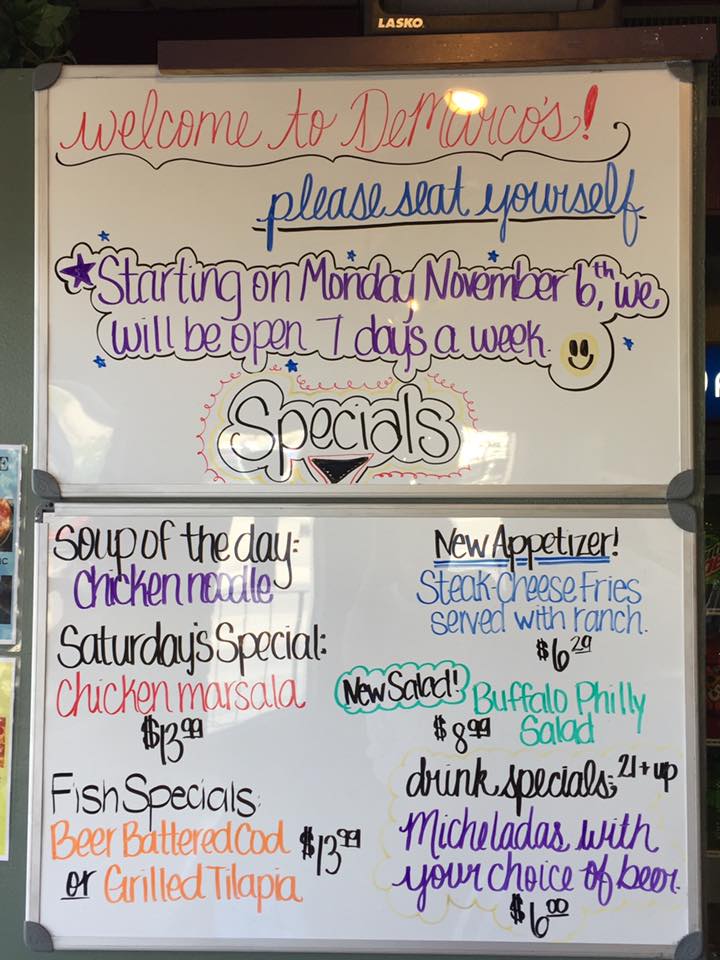 LASKO
welcome to DeMarco's!
please seat yourself
Starting on Monday November 6th, we
will be open 7 days a week.
Specials
Soup of the day:
Chicken noodle
Saturday's Special:
Chicken marsala
$13.99
Fish Specials:
Beer Battered Cod $13.99
or Grilled Tilapia
New Appetizer!
Steak-Cheese Fries
served with ranch.
$6.29
New Salad! Buffalo Philly
$8.99 Salad
drink specials; 21 + up
Micheladas with
your choice of beer.
$6.00